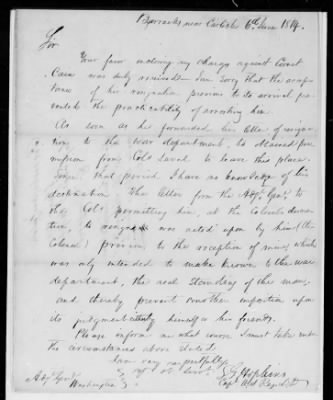 Barracks near Carlisle 6th June 1814.
Sir
Your favr enclosing my charges against Cornet
Cain was duly received – I am sorry that the accep-
tance of his resignation previous to its arrival pre-
vents the practicability of arresting him.
As soon as he forwarded his letter of resigna-
tion to the War department, he obtained per-
mission from Col. Laval to leave this place.
Since that period I have no knowledge of his
destination. The letter from the Adjt. Genl. to
the Col. permitting him, at the Colonels discre-
tion, to resign was acted upon by him (the
Colonel) previous to the reception of mine, which
was only intended to make known to the war
department, the real standing of the man,
and thereby prevent an imposition upon
its judgment either by himself or his friends.
Please inform me what course I must take under
the circumstances above stated
I am very respectfully
yr obt Servt.
S G Hopkins
Capt
Adjt Genl
Washington